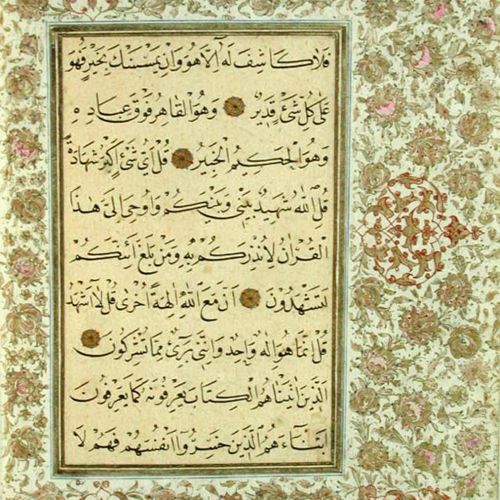 فَلَا كَاشِفَ لَهُ إِلَّا هُوَ وَإِنْ يَمْسَسْكَ بِخَيْرٍ فَهُوَ
عَلَى كُلِّ شَيْءٍ قَدِيرٌ وَهُوَ الْقَاهِرُ فَوْقَ عِبَادِهِ
وَهُوَ الْحَكِيمُ الْخَبِيرُ قُلْ أَيُّ شَيْءٍ أَكْبَرُ شَهَادَةً
قُلِ اللَّهُ شَهِيدٌ بَيْنِي وَبَيْنَكُمْ وَأُوحِيَ إِلَيَّ هَذَا
الْقُرْآنُ لِأُنْذِرَكُمْ بِهِ وَمَنْ بَلَغَ أَئِنَّكُمْ
لَتَشْهَدُونَ أَنَّ مَعَ اللَّهِ آلِهَةً أُخْرَى قُلْ لَا أَشْهَدُ
قُلْ إِنَّمَا هُوَ إِلَهٌ وَاحِدٌ وَإِنَّنِي بَرِيءٌ مِمَّا تُشْرِكُونَ
الَّذِينَ آتَيْنَاهُمُ الْكِتَابَ يَعْرِفُونَهُ كَمَا يَعْرِفُونَ
أَبْنَاءَهُمُ الَّذِينَ خَسِرُوا أَنْفُسَهُمْ فَهُمْ لَا